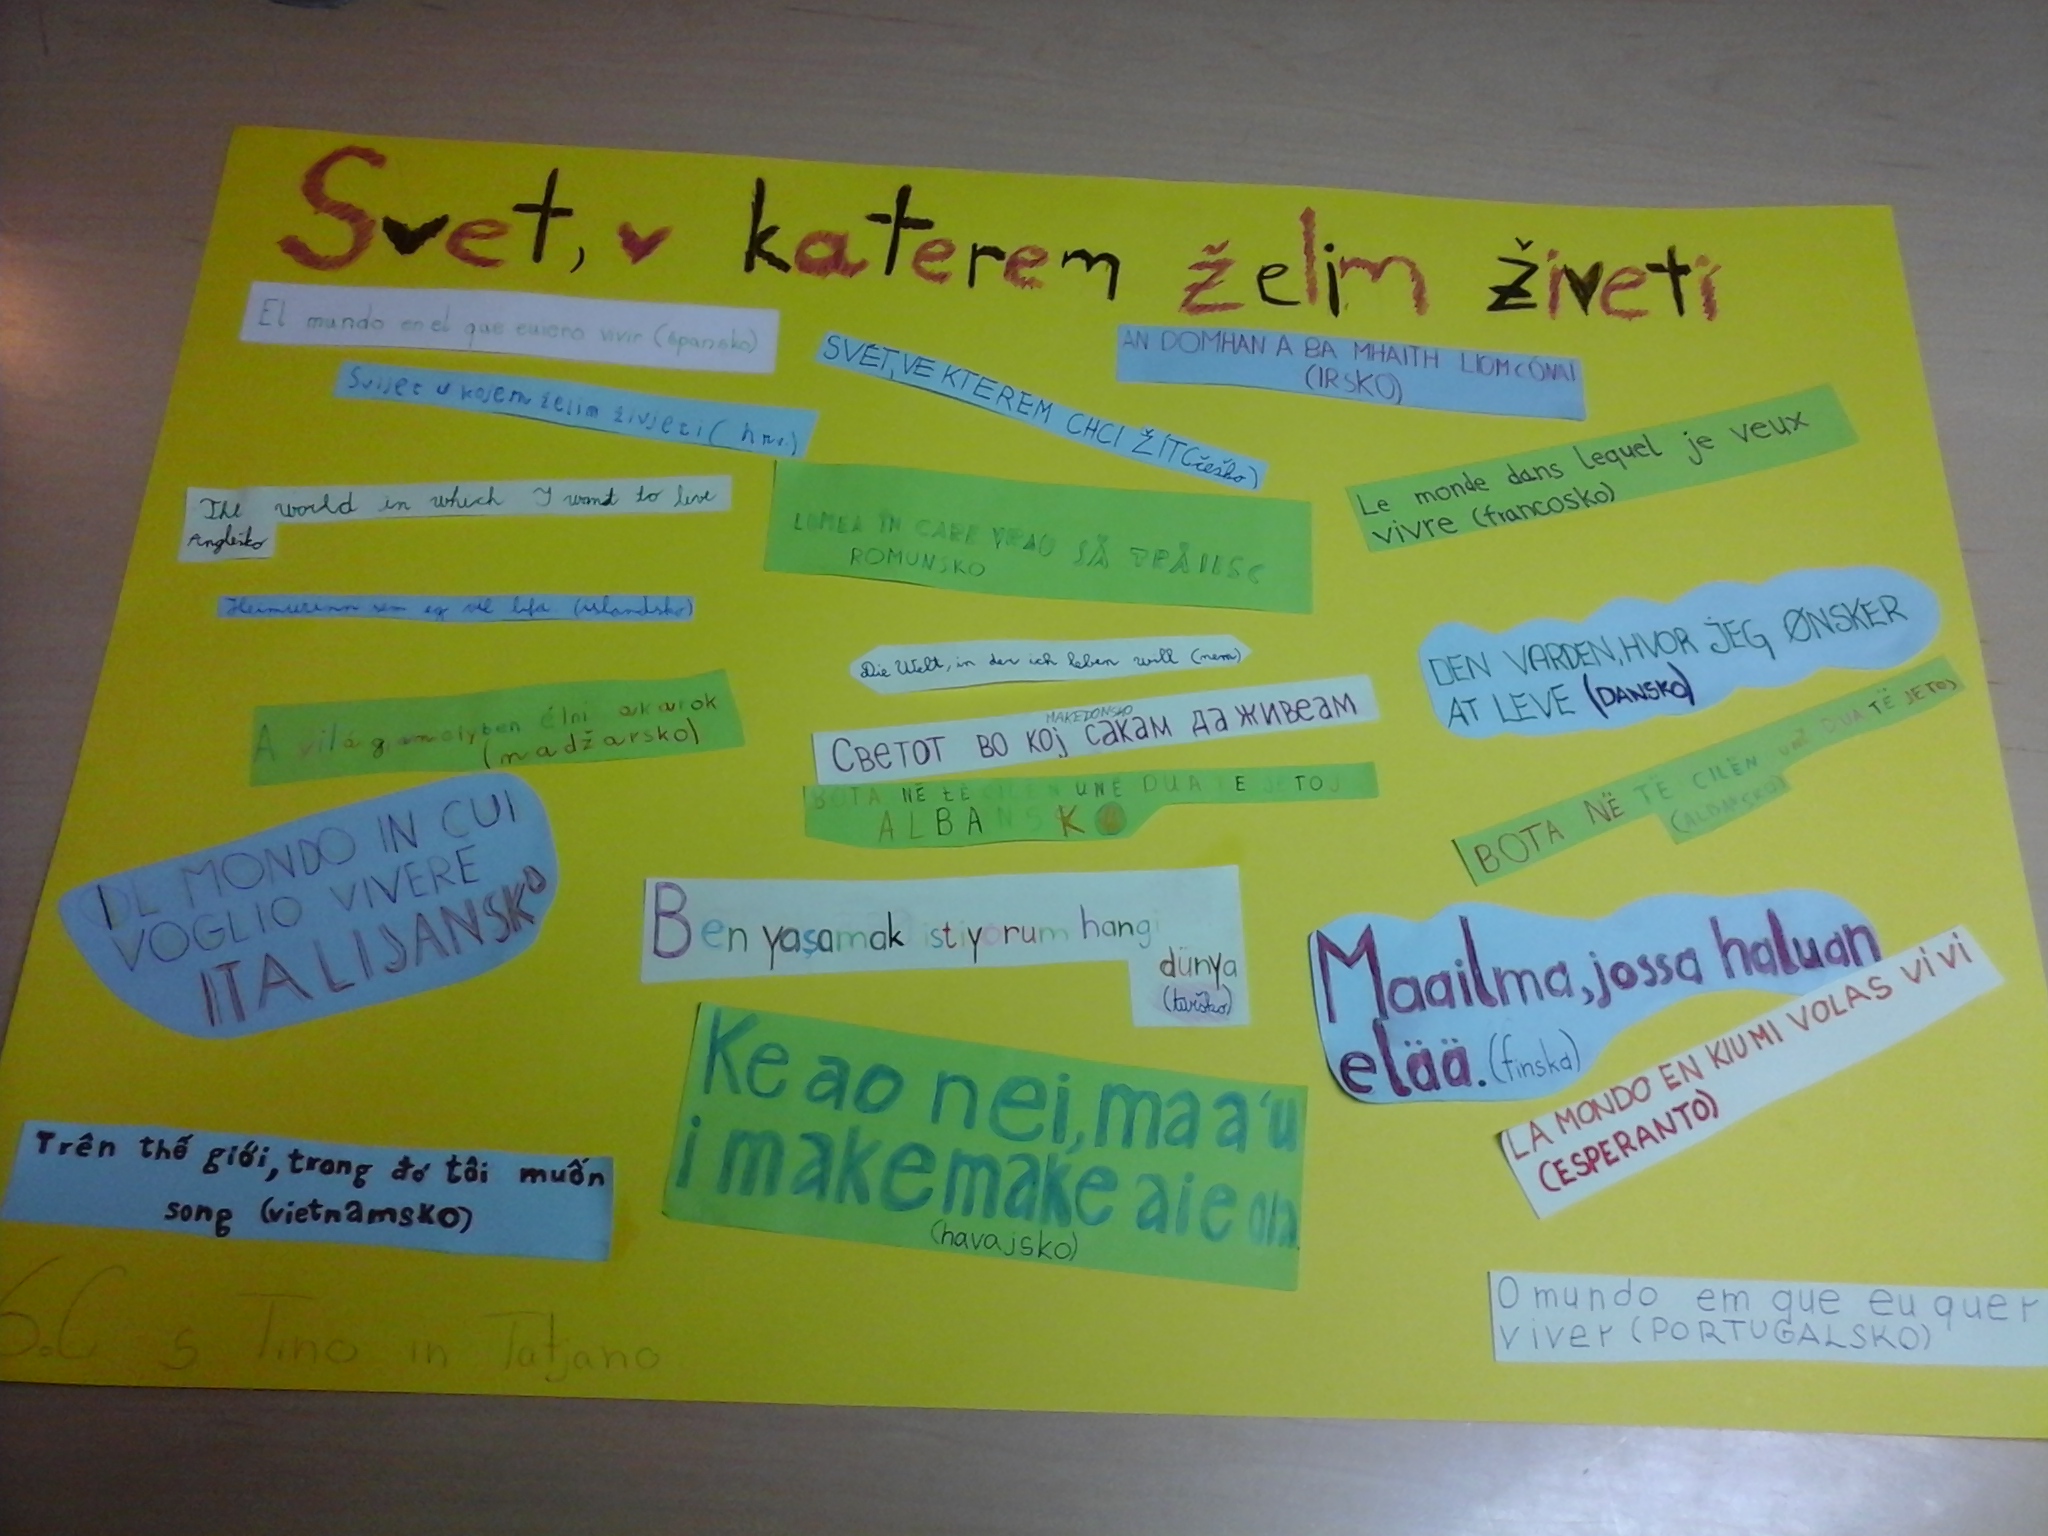 Svet, v katerem želim živeti
El mundo en el que euiero vivir (špansko)
Svijet u kojem želim živjeti (hrv.)
SVĚT, VE KTEREM CHCI ŽÍT (češko)
AN DOMHAN A BA MHAITH LIOM CÓNAI
(IRSKO)
Le monde dans lequel je veux
vivre (francosko)
The world in which I want to live
Angleško
LUMEA ÎN CARE VREAU SĂ TRĂIESC
ROMUNSKO
sem eg vil lifa (islandsko)
Die Welt, in der ich leben will (nem)
DEN VARDEN, HVOR JEG ØNSKER
AT LEVE (DANSKO)
A világ, amelyben élni akarok
(madžarsko)
MAKEDONSKO
Светот во кој сакам да живеам
BOTA NË TË CILËN UNË DUA TE JETOJ
ALBANSKO
BOTA NË TË CILËN unë DUA TË JETOJ
(ALBANSKO)
IL MONDO IN CUI
VOGLIO VIVERE
ITALIJANSKO
Ben yaşamak istiyorum hangi
dünya
(turško)
Maailma, jossa haluan
elää. (finska)
LA MONDO EN KIU MI VOLAS VIVI
(ESPERANTO)
Ke ao nei, ma a'u
i makemake aie ola
(havajsko)
Trên thế giới, trong đó tôi muốn
song (vietnamsko)
O mundo em que eu quer
viver (PORTUGALSKO)
6.C s Tino in Tatjano